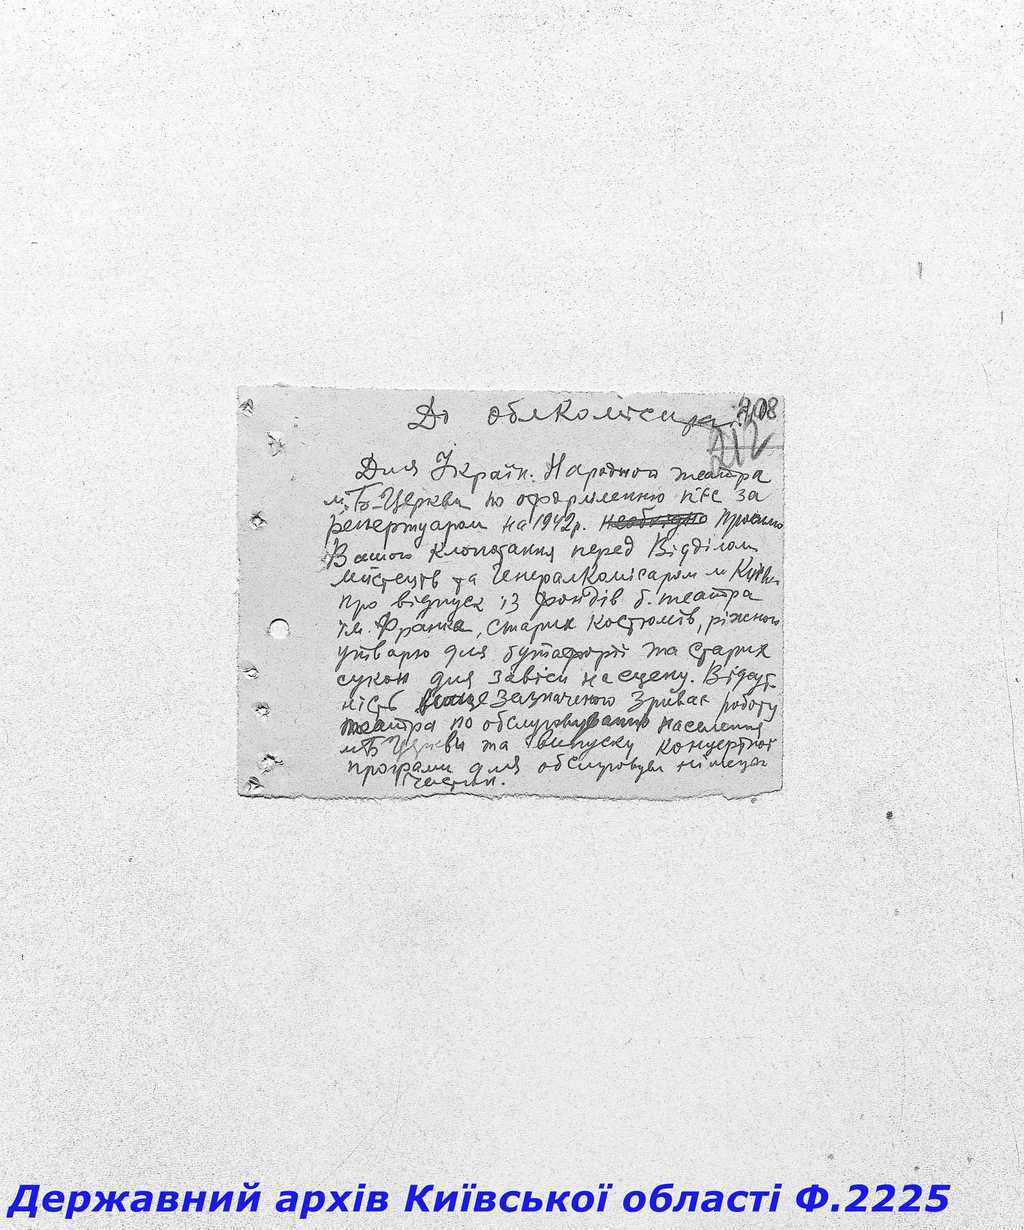 До облкомісара 208
212
Для Україн. Народного театра
м. Б-Церкви по оформленню п'єс за
репертуаром на 1942 р. необхідно просимо
Вашого клопотання перед Відділом
мистецтв та Генералкомісаром м Київа
про відпуск із фондів б. театра
ім. Франка, старих костюмів, ріжного
утварю для бутафорії та старих
сукон для завіси на сцену. Відсут-
ність вище зазначеного зриває роботу
театра по обслуговуванню населення
м Б Церкви та випуску концертної
програми для обслуговув німецьк
частин.
Державний архів Київської області Ф.2225